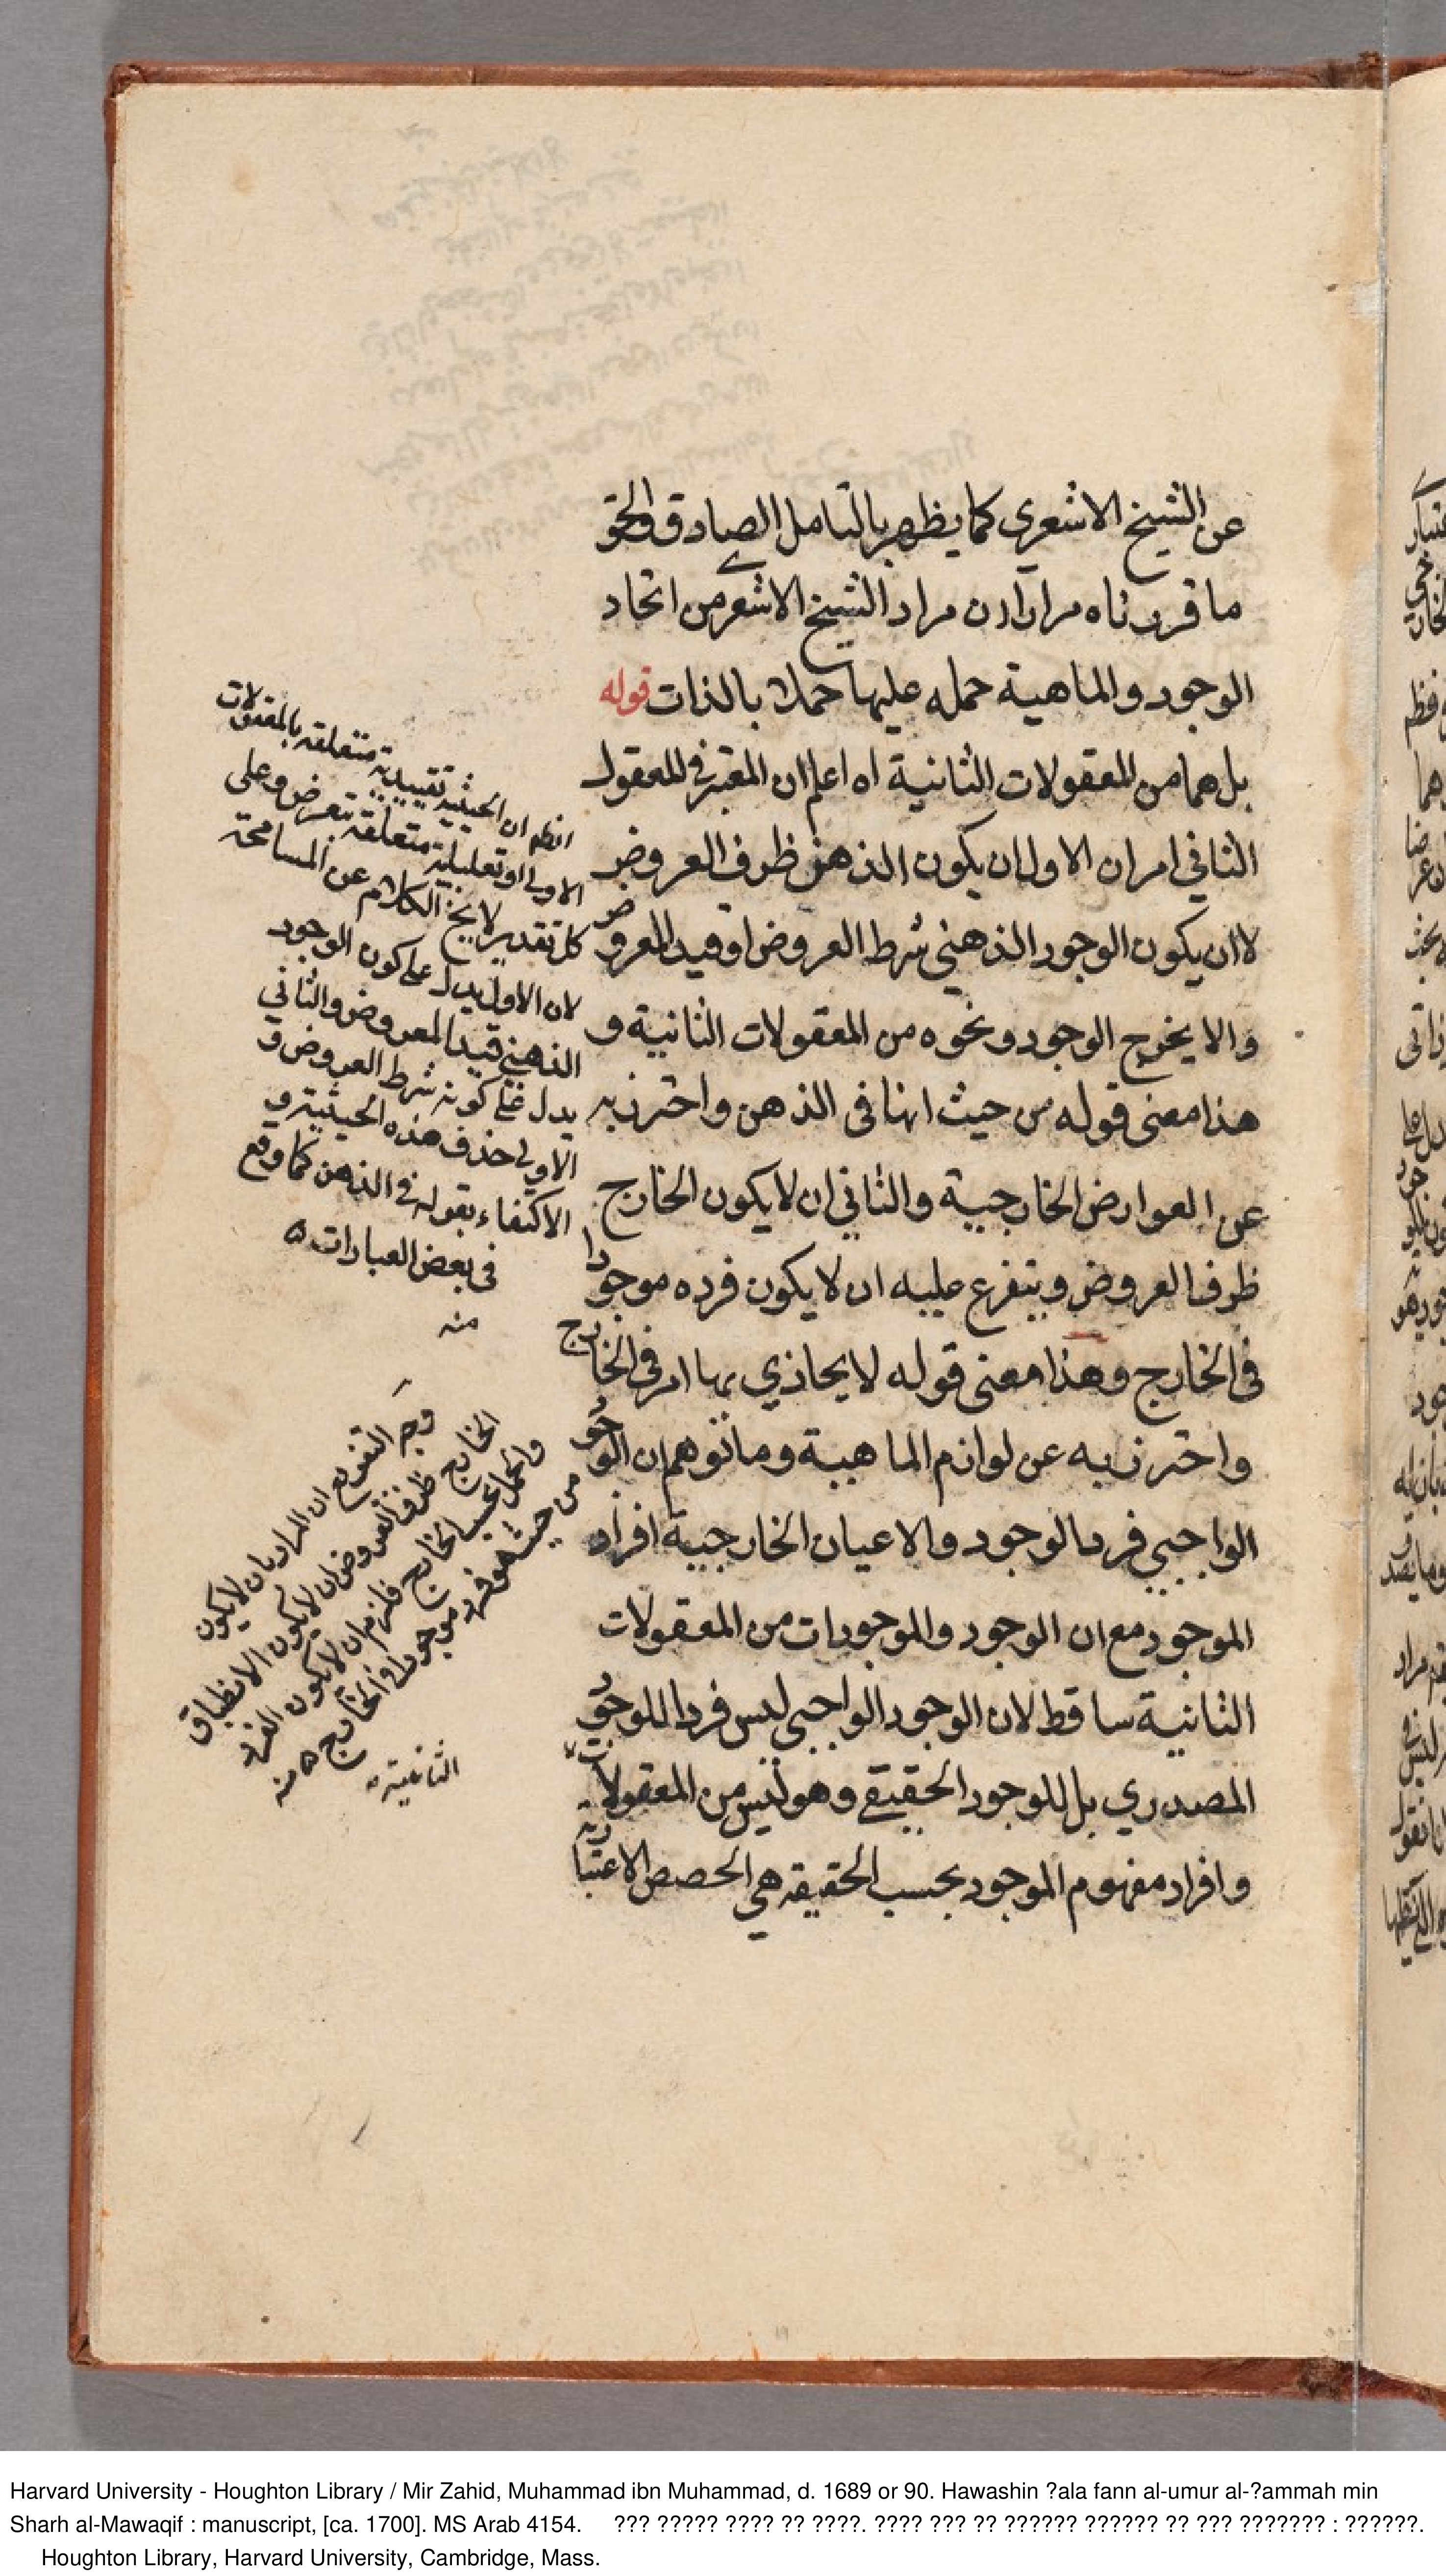 عن الشيخ الاشعري كما يظهر بالتامل الصادق والحق
ما قررناه مرارا ان مراد الشيخ الاشعري من اتحاد
الوجود والماهية حمله عليها حملا بالذات قوله
بل هما من المعقولات الثانية اه اعلم ان المعتبر في المعقول
الثاني امران الاول ان يكون الذهن ظرف العروض
لا ان يكون الوجود الذهني شرط العروض او قيد المعروض
والا يخرج الوجود ونحوه من المعقولات الثانية و
هذا معنى قوله من حيث انها في الذهن واحترز به
عن العوارض الخارجية والثاني ان لا يكون الخارج
ظرف العروض ويتفرع عليه ان لا يكون فرده موجودا
في الخارج وهذا معنى قوله لا يحاذي بها امر في الخارج
واحترز به عن لوازم الماهية وما توهم ان الوجود
الواجبي فرد الوجود والاعيان الخارجية افراد
الموجود مع ان الوجود والموجودات من المعقولات
الثانية ساقط لان الوجود الواجبي ليس فردا للوجود
المصدري بل للوجود الحقيقي وهو ليس من المعقولات
الثانية
وافراد مفهوم الموجود بحسب الحقيقه هي الحصص الاعتبارية
ان الحيثية تقييدية متعلقه بالمعقولات
الاولى او تعليلية متعلقه بتعرض وعلى
كل تقدير لا يخ الكلام عن المسامحة
لان الاول يدل على كون الوجود
الذهني قيد المعروض والثاني
يدل على كونه شرط العروض و
الاولى حذف هذه الحيثية و
الاكتفاء بقوله في الذهن كما وقع
في بعض العبارات ٥
منه
وجه التفريع ان المراد بان لا يكون
الخارج ظرف العروض ان لا يكون الانطباق
والحمل بحسب الخارج فلزم ان لا يكون الفرد
من حيث هو فرد موجودا في الخارج ٥ منه
Harvard University - Houghton Library / Mir Zahid, Muhammad ibn Muhammad, d. 1689 or 90. Hawashin ?ala fann al-umur al-?ammah min
Sharh al-Mawaqif : manuscript, [ca. 1700]. MS Arab 4154. ??? ????? ???? ?? ????. ???? ??? ?? ?????? ?????? ?? ??? ??????? : ??????.
Houghton Library, Harvard University, Cambridge, Mass.